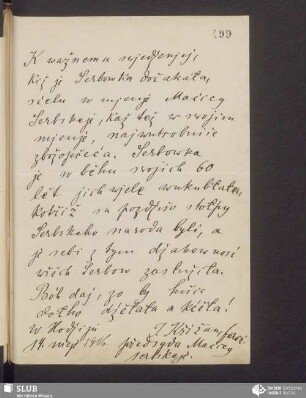 199
K ważnemu zjedźenjej,
kiž je Serbowka dočakała,
sćelu w mjenje Maćicy
Serbskej, kaž tež w swojim
mjenje, najwutrobniše
zbožopřeća. Serbowka
je w běhu swojich 60
lět jich wjele wukubłała,
kotřiž su pozdźišo stołpy
Serbskeho naroda byli, a
je sebi z tym dźakownosć
wšěch Serbow zasłužiła.
Bóh daj, zo by hišće
dołho dźěłała a kćěła!
W Hodźiju
14. meje 1906.
J. Křižan, farar
předsyda Maćicy
serbskeje.
SLUB
Wir führen Wissen.